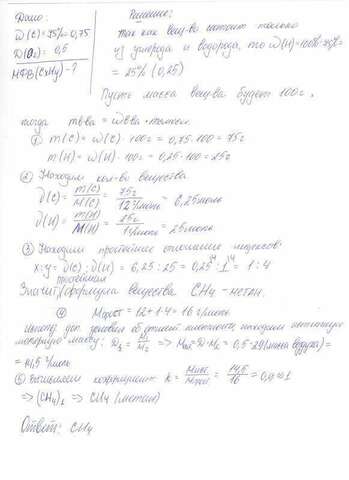 Дано:
ω(C)=75%=0,75
D(O₂) = 0,5
МФВ(CxHy)-?
Решение:
Так как вещ-во состоит только
из углерода и водорода, то ω(H)=100%-75%=
= 25% (0,25)
Пусть масса вещ-ва будет 100г,
тогда
① m(C) = ω(C) · 100г = 0,75·100 = 75г
m(H) = ω(H) · 100г = 0,25·100 = 25г
② Находим кол-во вещества
ν(C) = m(C)/M(C) = 75г/12г/моль = 6,25моль
ν(H) = m(H)/M(H) = 25г/1г/моль = 25моль
③ Находим простейшее отношение индексов:
x:y = ν(C) : ν(H) = 6,25 : 25 = 0,25 : 1 = 1 : 4
простейшая
Значит, формула вещества CH₄ - метан.
④ Mпрост = 12+1·4 = 16 г/моль
находим истинную
молярную массу: => = 0,5·29(масса воздуха) =
= 14,5 г/моль
⑤ Вычисляем коэффициент k = Mист./Mпрост. = 14,5/16 = 0,9 ≈ 1
=> (CH₄)₁ => CH₄ (метан)
Ответ: CH₄